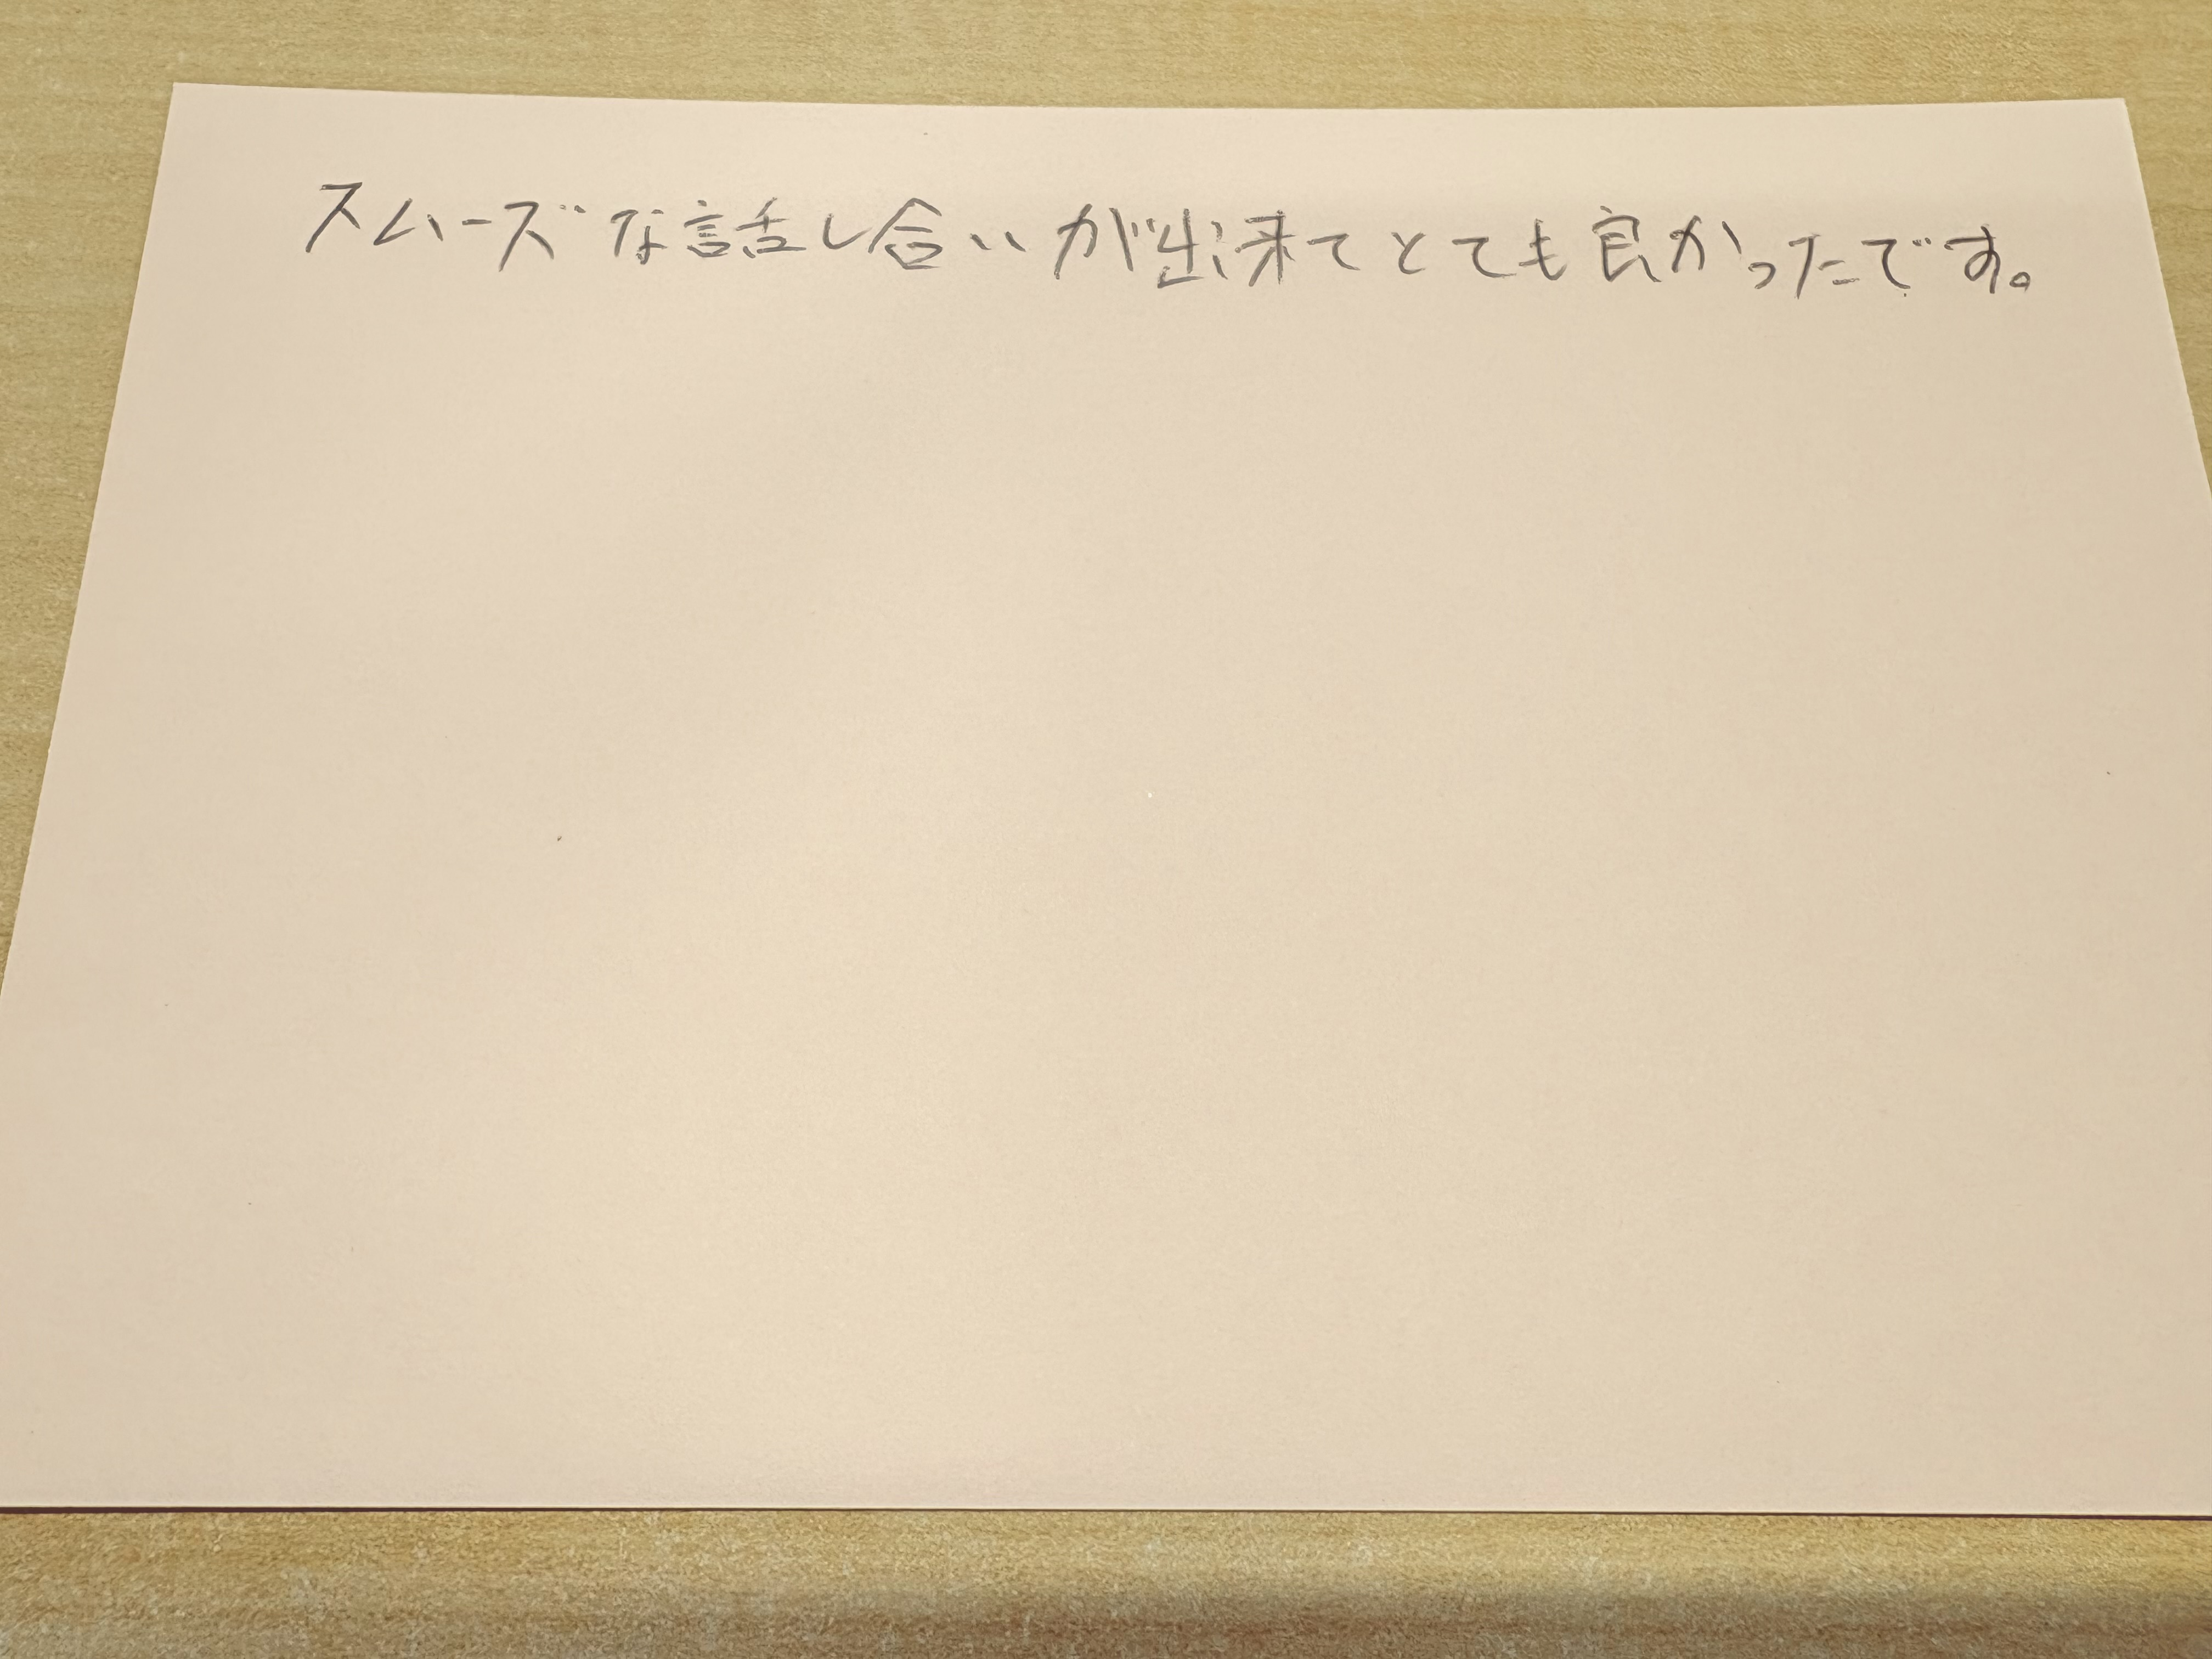 スムーズな話し合いが出来てとても良かったです。